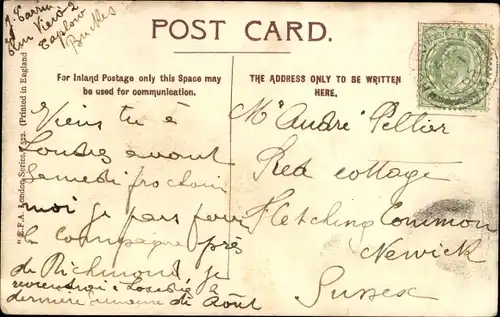 Elm View
Taplow
Bucks
POST CARD.
For Inland Postage only this Space may
be used for communication.
THE ADDRESS ONLY TO BE WRITTEN
HERE.
"E.F.A. London Series, 1522. (Printed in England
Viens tu à
Londres avant
Samedi prochain
moi je pars pour
la campagne près
de Richmond, je
reviendrai à Londres la
dernière semaine de Août
Mr André Peltier
Red cottage
Fletching Common
Newick
Sussex